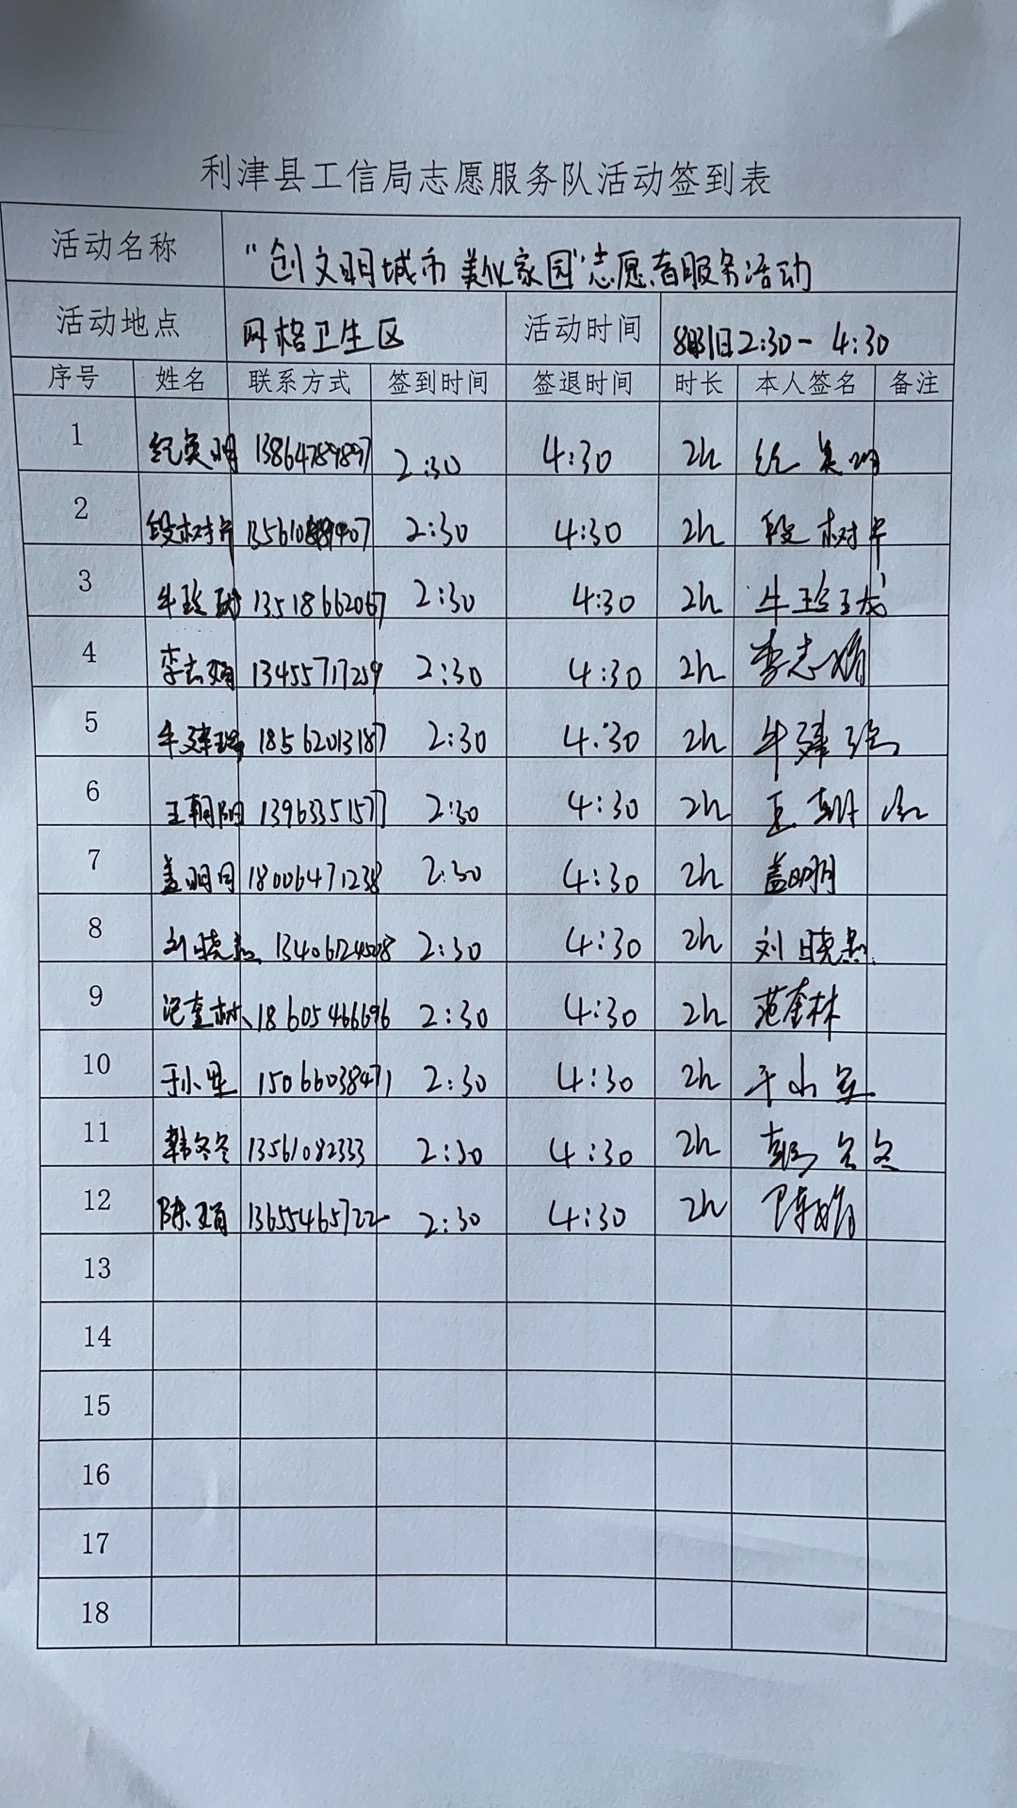 利津县工信局志愿服务队活动签到表
活动名称 "创文明城市 美化家园"志愿者服务活动
活动地点 网格卫生区 活动时间 8月31日2:30- 4:30
序号 姓名 联系方式 签到时间 签退时间 时长 本人签名 备注
1 纪英明 13864789897 2:30 4:30 2h 纪英明
2 段树片 2:30 4:30 2h 段树片
3 牛玲珑 13518662067 2:30 4:30 2h 牛玲珑
4 李志娟 13455717259 2:30 4:30 2h 李志娟
5 18562013187 2:30 4:30 2h
6 王朝阳 13963351577 2:30 4:30 2h 王朝阳
7 盖明月 18006471238 2:30 4:30 2h 盖明月
8 2:30 4:30 2h
9 范奎林 18605466696 2:30 4:30 2h 范奎林
10 15066038471 2:30 4:30 2h
11 韩冬冬 13561082333 2:30 4:30 2h 韩冬冬
12 陈娟 13655465722 2:30 4:30 2h 陈娟
13
14
15
16
17
18